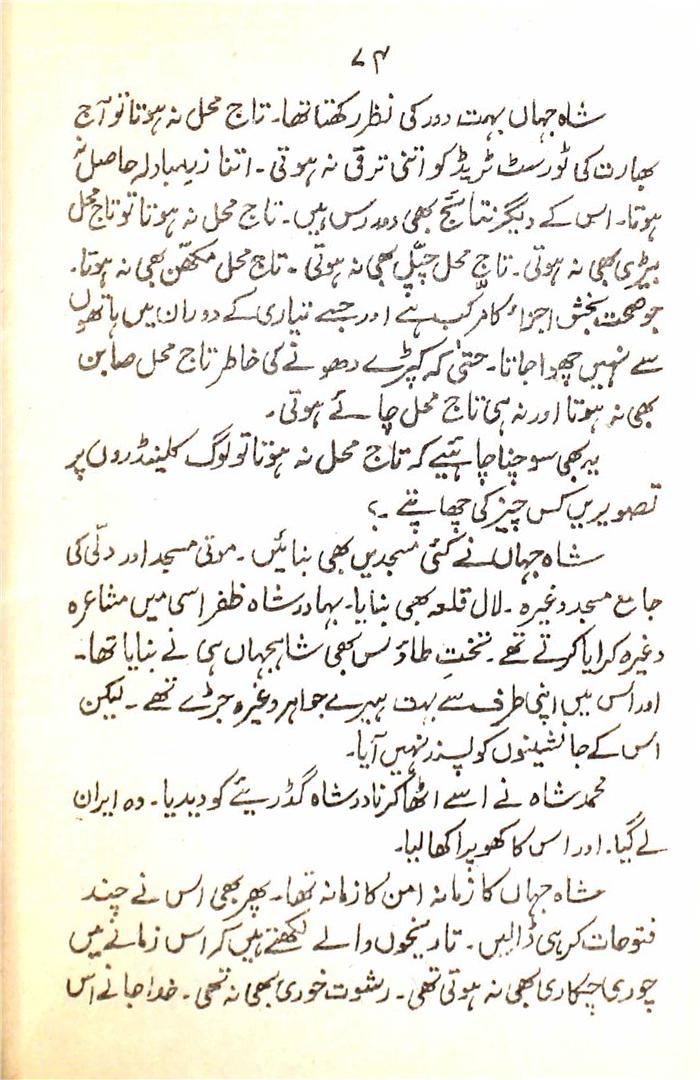 ۷۴
شاہ جہاں بہت دور کی نظر رکھتا تھا۔ تاج محل نہ ہوتا تو آج
بھارت کی ٹورسٹ ٹریڈ کو اتنی ترقی نہ ہوتی۔ اتنا زرِ مبادلہ حاصل نہ
ہوتا۔ اس کے دیگر نتائج بھی دور رس ہیں۔ تاج محل نہ ہوتا تو تاج محل
بیڑی بھی نہ ہوتی۔ تاج محل چپّل بھی نہ ہوتی۔ تاج محل مکھّن بھی نہ ہوتا۔
جو صحت بخش اجزاء کا مرکب ہے اور جسے تیاری کے دوران میں ہاتھوں
سے نہیں چھوا جاتا۔ حتیٰ کہ کپڑے دھونے کی خاطر تاج محل صابن
بھی نہ ہوتا اور نہ ہی تاج محل چائے ہوتی۔
یہ بھی سوچنا چاہئیے کہ تاج محل نہ ہوتا تو لوگ کلینڈروں پر
تصویریں کس چیز کی چھاپتے۔؟
شاہ جہاں نے کئی مسجدیں بھی بنائیں۔ موتی مسجد اور دلّی کی
جامع مسجد وغیرہ۔ لال قلعہ بھی بنایا۔ بہادر شاہ ظفر اسی میں مشاعرہ
وغیرہ کرایا کرتے تھے۔ تختِ طاؤس بھی شاہجہاں ہی نے بنایا تھا۔
اور اُس میں اپنی طرف سے بہت ہیرے جواہر وغیرہ جڑے تھے۔ لیکن
اس کے جانشینوں کو پسند نہیں آیا۔
محمد شاہ نے اسے اٹھا کر نادر شاہ گڈریئے کو دیدیا۔ وہ ایران
لے گیا۔ اور اس کا کھوپرا کھا لیا۔
شاہ جہاں کا زمانہ امن کا زمانہ تھا۔ پھر بھی اس نے چند
فتوحات کر ہی ڈالیں۔ تاریخوں والے لکھتے ہیں کہ اس زمانے میں
چوری چکاری بھی نہ ہوتی تھی۔ رشوت خوری بھی نہ تھی۔ خدا جانے اس